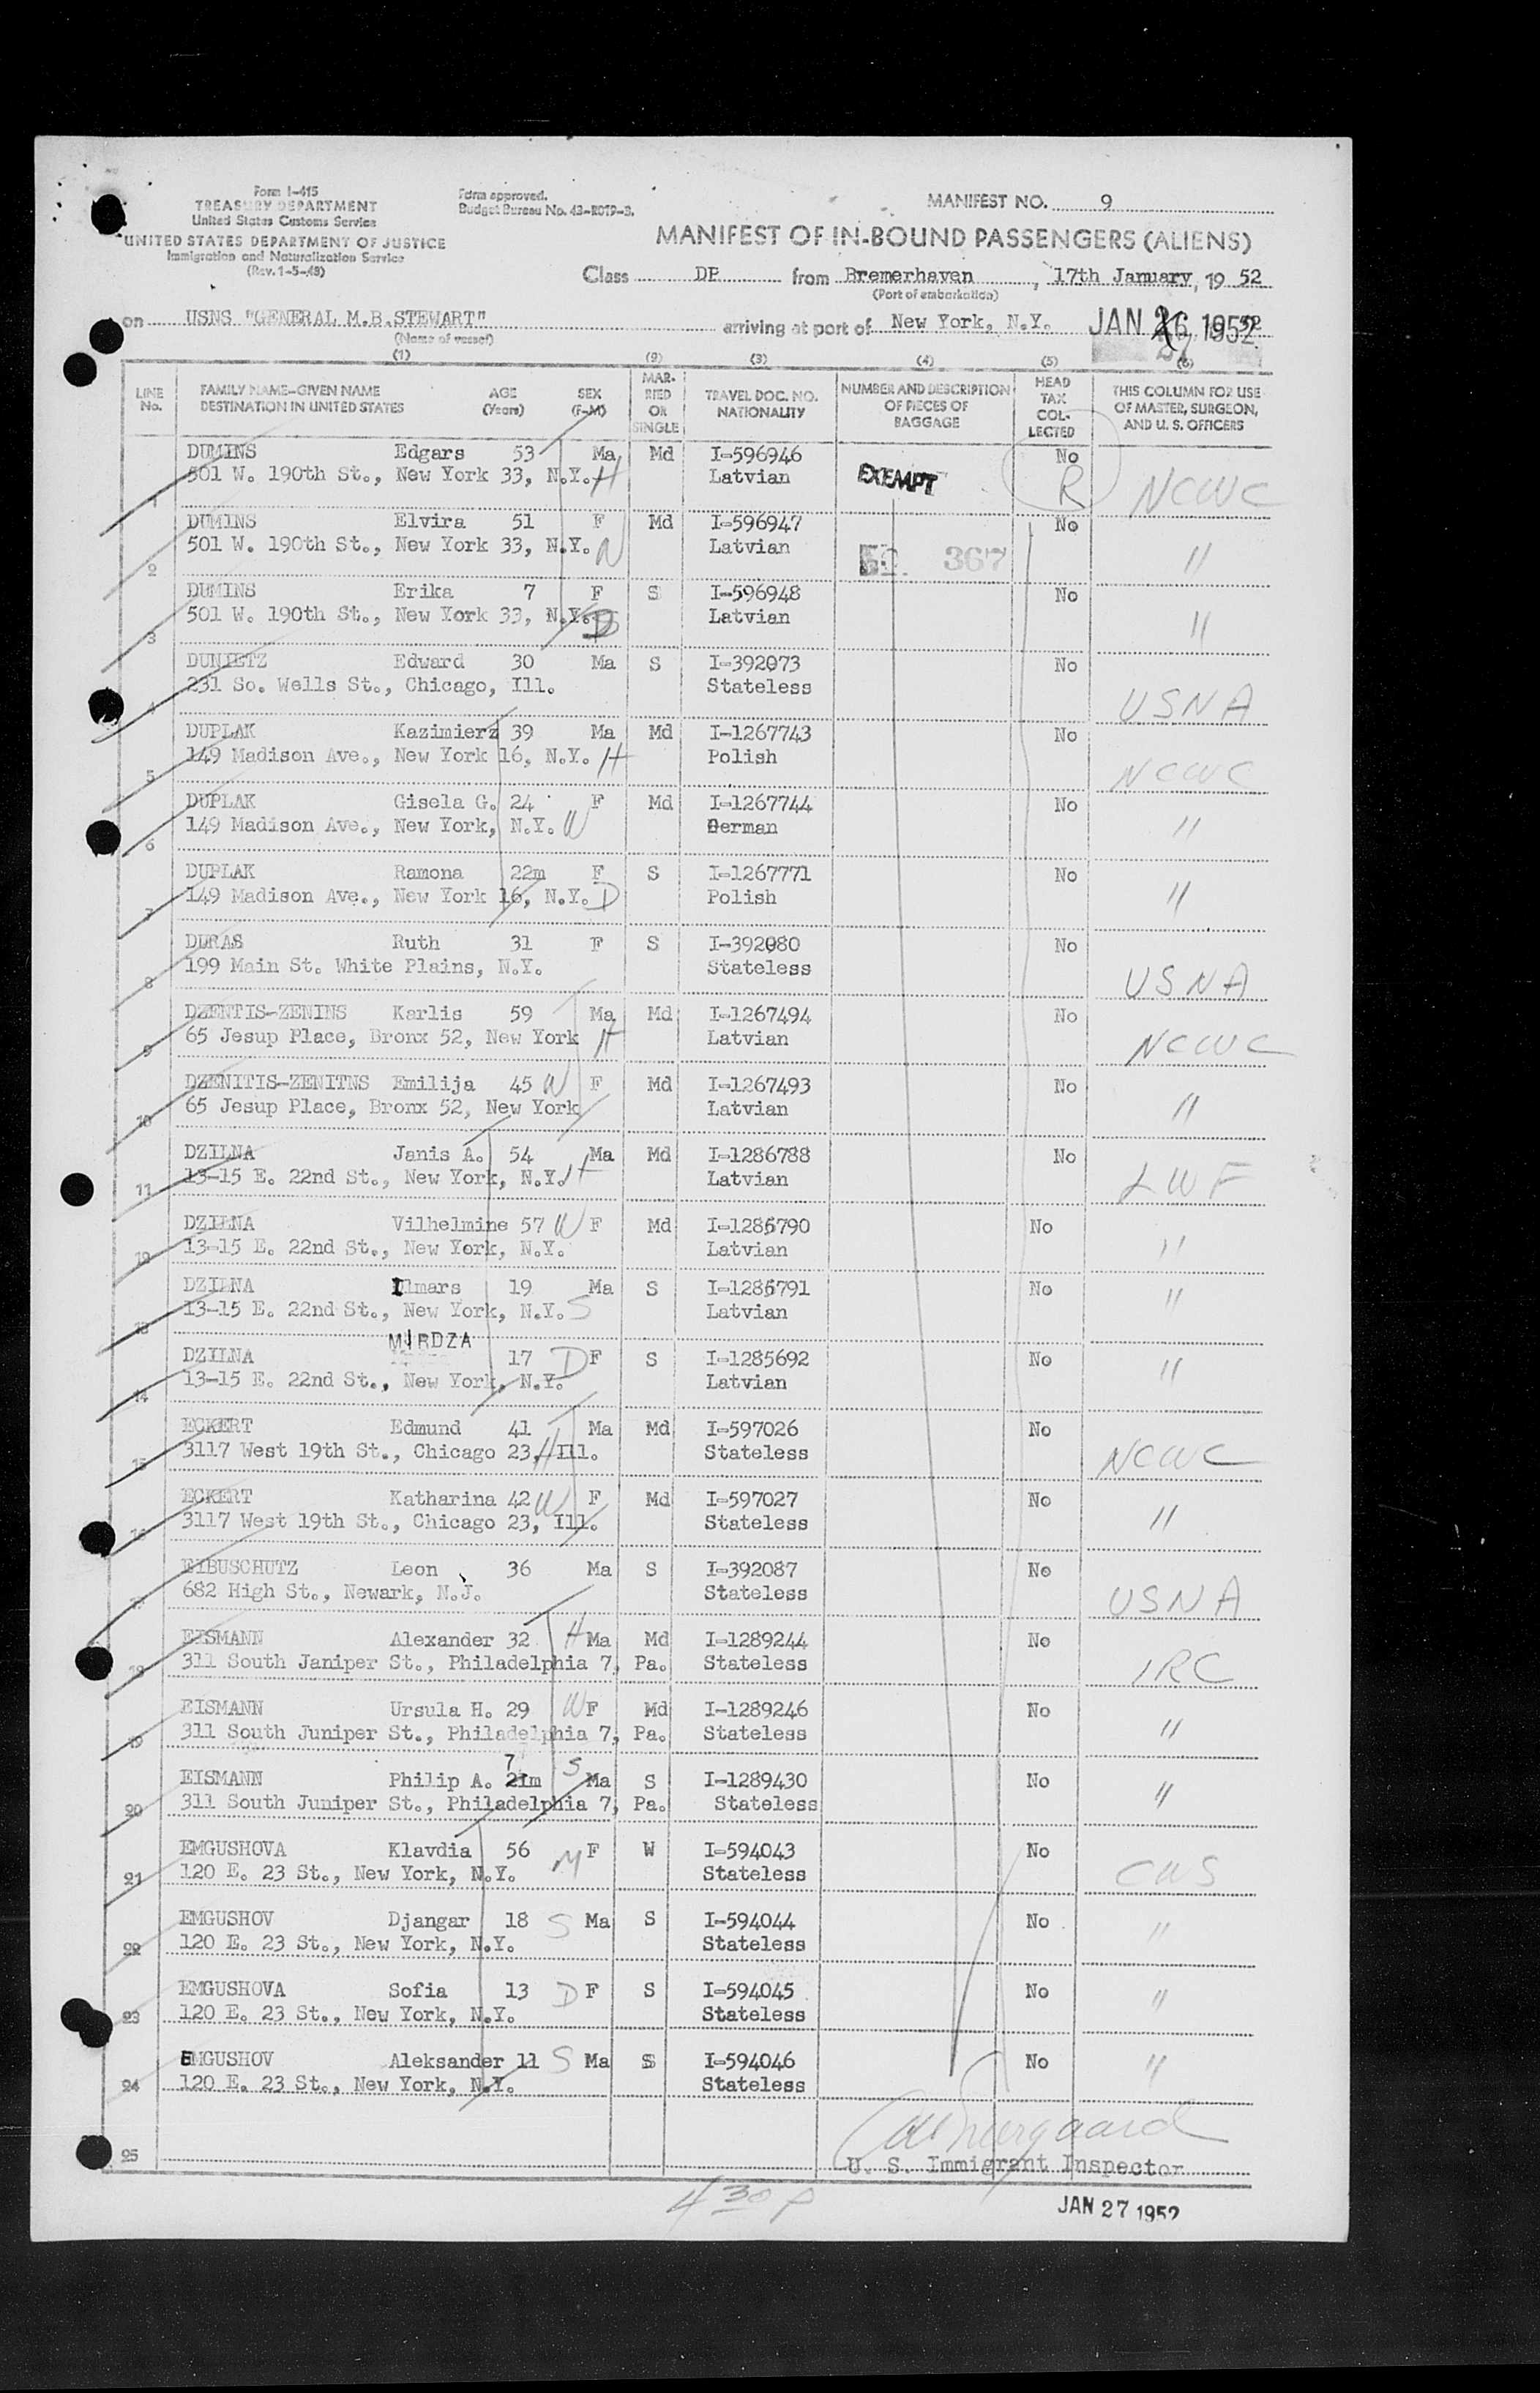 Form I-415
TREASURY DEPARTMENT
United States Customs Service
UNITED STATES DEPARTMENT OF JUSTICE
Immigration and Naturalization Service
(Rev. 1-5-48)
Form approved.
Budget Bureau No. 43-R079-3.
MANIFEST NO. 9
MANIFEST OF IN-BOUND PASSENGERS (ALIENS)
Class DP from Bremerhaven, 17th January, 19 52
(Port of embarkation)
on USNS "GENERAL M.B.STEWART" arriving at port of New York, N.Y. JAN 26 1952
(Name of vessel)
(1) (2) (3) (4) (5) (6)
LINE No. FAMILY NAME-GIVEN NAME DESTINATION IN UNITED STATES AGE (Years) SEX (F-M) MARRIED OR SINGLE TRAVEL DOC. NO. NATIONALITY NUMBER AND DESCRIPTION OF PIECES OF BAGGAGE HEAD TAX COLLECTED THIS COLUMN FOR USE OF MASTER, SURGEON, AND U. S. OFFICERS
1 DUMINS Edgars 53 Ma Md I-596946 No
501 W. 190th St., New York 33, N.Y. H Latvian EXEMPT R NCWC
2 DUMINS Elvira 51 F Md I-596947 No
501 W. 190th St., New York 33, N.Y. W Latvian 367 "
3 DUMINS Erika 7 F S I-596948 No
501 W. 190th St., New York 33, N.Y. D Latvian "
4 DUNIETZ Edward 30 Ma S I-392073 No
231 So. Wells St., Chicago, Ill. Stateless USNA
5 DUPLAK Kazimierz 39 Ma Md I-1267743 No
149 Madison Ave., New York 16, N.Y. H Polish NCWC
6 DUPLAK Gisela G. 24 F Md I-1267744 No
149 Madison Ave., New York, N.Y. W German "
7 DUPLAK Ramona 22m F S I-1267771 No
149 Madison Ave., New York 16, N.Y. D Polish "
8 DURAS Ruth 31 F S I-392080 No
199 Main St. White Plains, N.Y. Stateless USNA
9 DZENTIS-ZENINS Karlis 59 Ma Md I-1267494 No
65 Jesup Place, Bronx 52, New York H Latvian NCWC
10 DZENITIS-ZENITNS Emilija 45 W F Md I-1267493 No
65 Jesup Place, Bronx 52, New York Latvian "
11 DZILNA Janis A. 54 Ma Md I-1286788 No
13-15 E. 22nd St., New York, N.Y. H Latvian LWF
12 DZILNA Vilhelmine 57 W F Md I-1285790 No
13-15 E. 22nd St., New York, N.Y. Latvian "
13 DZILNA Ilmars 19 Ma S I-1285791 No
13-15 E. 22nd St., New York, N.Y. S Latvian "
14 DZILNA MIRDZA 17 D F S I-1285692 No
13-15 E. 22nd St., New York, N.Y. Latvian "
15 ECKERT Edmund 41 Ma Md I-597026 No
3117 West 19th St., Chicago 23, H Ill. Stateless NCWC
16 ECKERT Katharina 42 W F Md I-597027 No
3117 West 19th St., Chicago 23, Ill. Stateless "
17 EIBUSCHUTZ Leon 36 Ma S I-392087 No
682 High St., Newark, N.J. Stateless USNA
18 EISMANN Alexander 32 H Ma Md I-1289244 No
311 South Janiper St., Philadelphia 7, Pa. Stateless IRC
19 EISMANN Ursula H. 29 W F Md I-1289246 No
311 South Juniper St., Philadelphia 7, Pa. Stateless "
20 EISMANN Philip A. 7 21m S Ma S I-1289430 No
311 South Juniper St., Philadelphia 7, Pa. Stateless "
21 EMGUSHOVA Klavdia 56 M F W I-594043 No
120 E. 23 St., New York, N.Y. Stateless CWS
22 EMGUSHOV Djangar 18 S Ma S I-594044 No
120 E. 23 St., New York, N.Y. Stateless "
23 EMGUSHOVA Sofia 13 D F S I-594045 No
120 E. 23 St., New York, N.Y. Stateless "
24 EMGUSHOV Aleksander 11 S Ma S I-594046 No
120 E. 23 St., New York, N.Y. Stateless "
25
U. S. Immigrant Inspector
430 P
JAN 27 1952